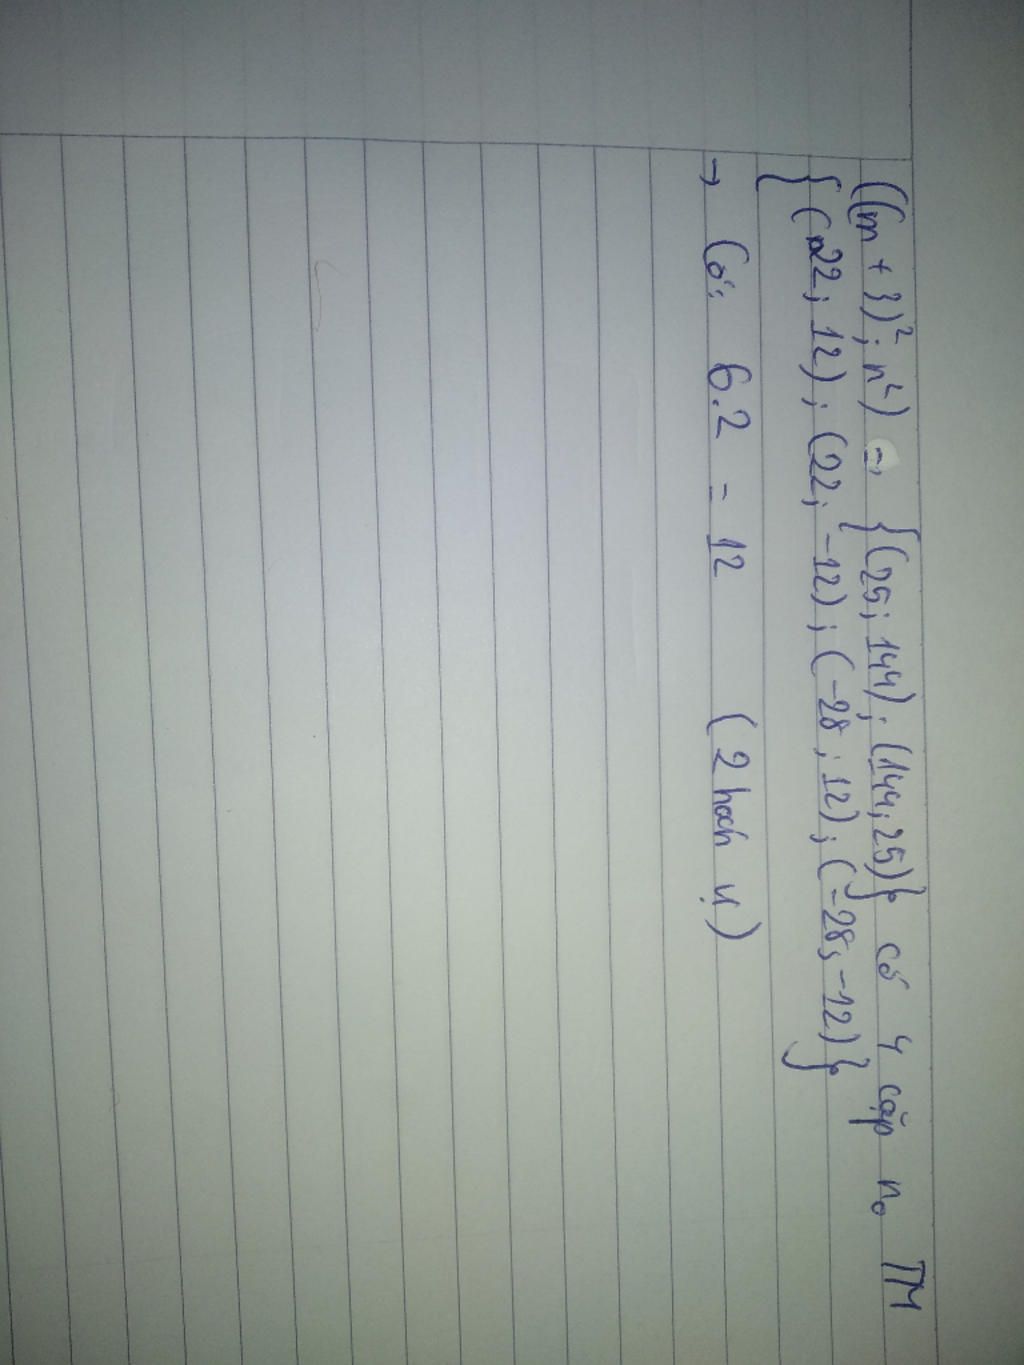 ((m + 3)²; n²) = {(25; 144); (144; 25)} có 4 cặp n₀ TM
{(22; 12); (22; -12); (-28; 12); (-28; -12)}
→ Có: 6.2 = 12 (2 hoán vị)